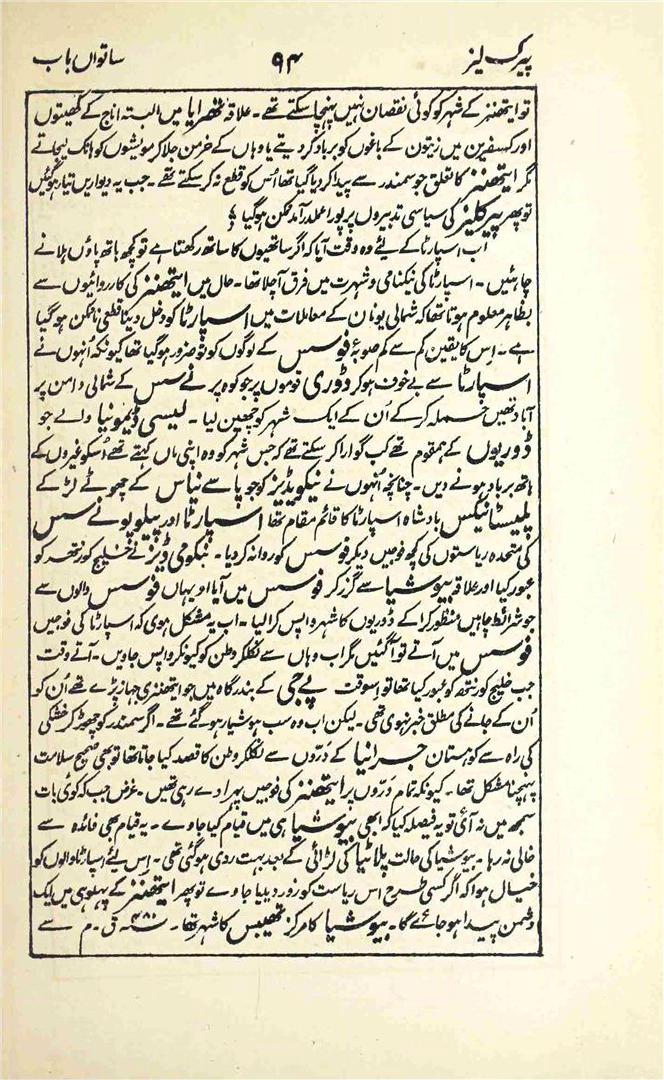 پیرکلیز ۹۴ ساتواں باب
تو ایتھنز کے شہر کو کوئی نقصان نہیں پہنچا سکتے تھے۔ علاقہ تھرایا میں البتہ اناج کے کھیتوں
اور کسفرین میں زیتون کے باغوں کو برباد کر دیتے یا وہاں کے خرمن جلا کر مویشوں کو ہانک لیجاتے
مگر ایتھنز کا تعلق جو سمندر سے پیدا کر دیا گیا تھا اُس کو قطع نہ کر سکتے تھے۔ جب یہ دیواریں تیار ہوگئیں
تو پھر پیرکلیز کی سیاسی تدبیروں پر پورا عملدرآمد ممکن ہو گیا
اب اسپارٹا کے لیے وہ وقت آیا کہ اگر ساتھیوں کا ساتھ رکھتا ہے تو کچھ ہاتھ پاؤں ہلانے
چاہئیں۔ اسپارٹا کی نیکنامی و شہرت میں فرق آ چلا تھا۔ حال میں ایتھنز کی کارروائیوں سے
بظاہر معلوم ہوتا تھا کہ شمالی یونان کے معاملات میں اسپارٹا کو دخل دینا قطعی ناممکن ہو گیا
ہے۔ اِس کا یقین کم سے کم صوبۂ فوسس کے لوگوں کو تو ضرور ہو گیا تھا کیونکہ اُنہوں نے
اسپارٹا سے بے خوف ہو کر ڈوری قوموں پر جو کوہ پرنےسس کے شمالی دامن پر
آباد تھیں حملہ کر کے اُن کے ایک شہر کو چھین لیا۔ لیسی ڈیمونیا والے جو
ڈوریوں کے ہمقوم تھے کب گوارا کر سکتے تھے کہ جس شہر کو وہ اپنی ماں کہتے تھے اُسکو غیروں کے
ہاتھ برباد ہونے دیں۔ چنانچہ اُنہوں نے نیکومیڈیز کو جو پاسے نیاس کے چھوٹے لڑکے
پلیسٹانیکس بادشاہ اسپارٹا کا قائم مقام تھا اسپارٹا اور پیلوپونےسس
کی متحدہ ریاستوں کی کچھ فوجیں دیکر فوسس کو روانہ کر دیا۔ نیکومی ڈیز نے خلیج کورنتھ کو
عبور کیا اور علاقہ بیوشیا سے گزر کر فوسس میں آیا اور یہاں فوسس والوں سے
جو شرائط چاہیں منظور کرا کے ڈوریوں کا شہر واپس کرا لیا۔ اب یہ مشکل ہوی کہ اسپارٹا کی فوجیں
فوسس میں آنے تو آ گئیں مگر اب وہاں سے نکلکر وطن کو کیونکر واپس جاویں۔ آتے وقت
جب خلیج کورنتھ کو عبور کیا تھا تو اسوقت پےجی کے بندرگاہ میں جو ایتھنزی جہاز پڑے تھے اُن کو
اُن کے جانے کی مطلق خبر نہوی تھی۔ لیکن اب وہ سب ہوشیار ہو گئے تھے۔ اگر سمندر کو چھوڑ کر خشکی
کی راہ سے کوہستان جرانیا کے دَرّوں سے نکلکر وطن کا قصد کیا جاتا تھا تو بھی صحیح سلامت
پہنچنا مشکل تھا۔ کیونکہ تمام درّوں پر ایتھنز کی فوجیں پہرا دے رہی تھیں۔ غرض جب کہ کوئی بات
سمجھ میں نہ آئی تو یہ فیصلہ کیا کہ ابھی بیوشیا ہی میں قیام کیا جاوے۔ یہ قیام بھی فائدہ سے
خالی نہ رہا۔ بیوشیا کی حالت پلاٹیا کی لڑائی کے بعد بہت ردی ہو گئی تھی۔ اِس لیئے اسپارٹا والوں کو
خیال ہوا کہ اگر کسی طرح اس ریاست کو زور دیدیا جاوے تو پھر ایتھنز کے پہلو ہی میں ایک
دشمن پیدا ہو جائے گا۔ بیوشیا کا مرکز تھیبس کا شہر تھا۔ سنہ ۴۸۰ ق۔م سے